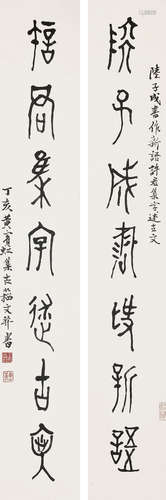 陸子成書作新語
許君集字述古文
陸子成書作新語許君集字述古文
丁亥黃賓虹集古籀文并書